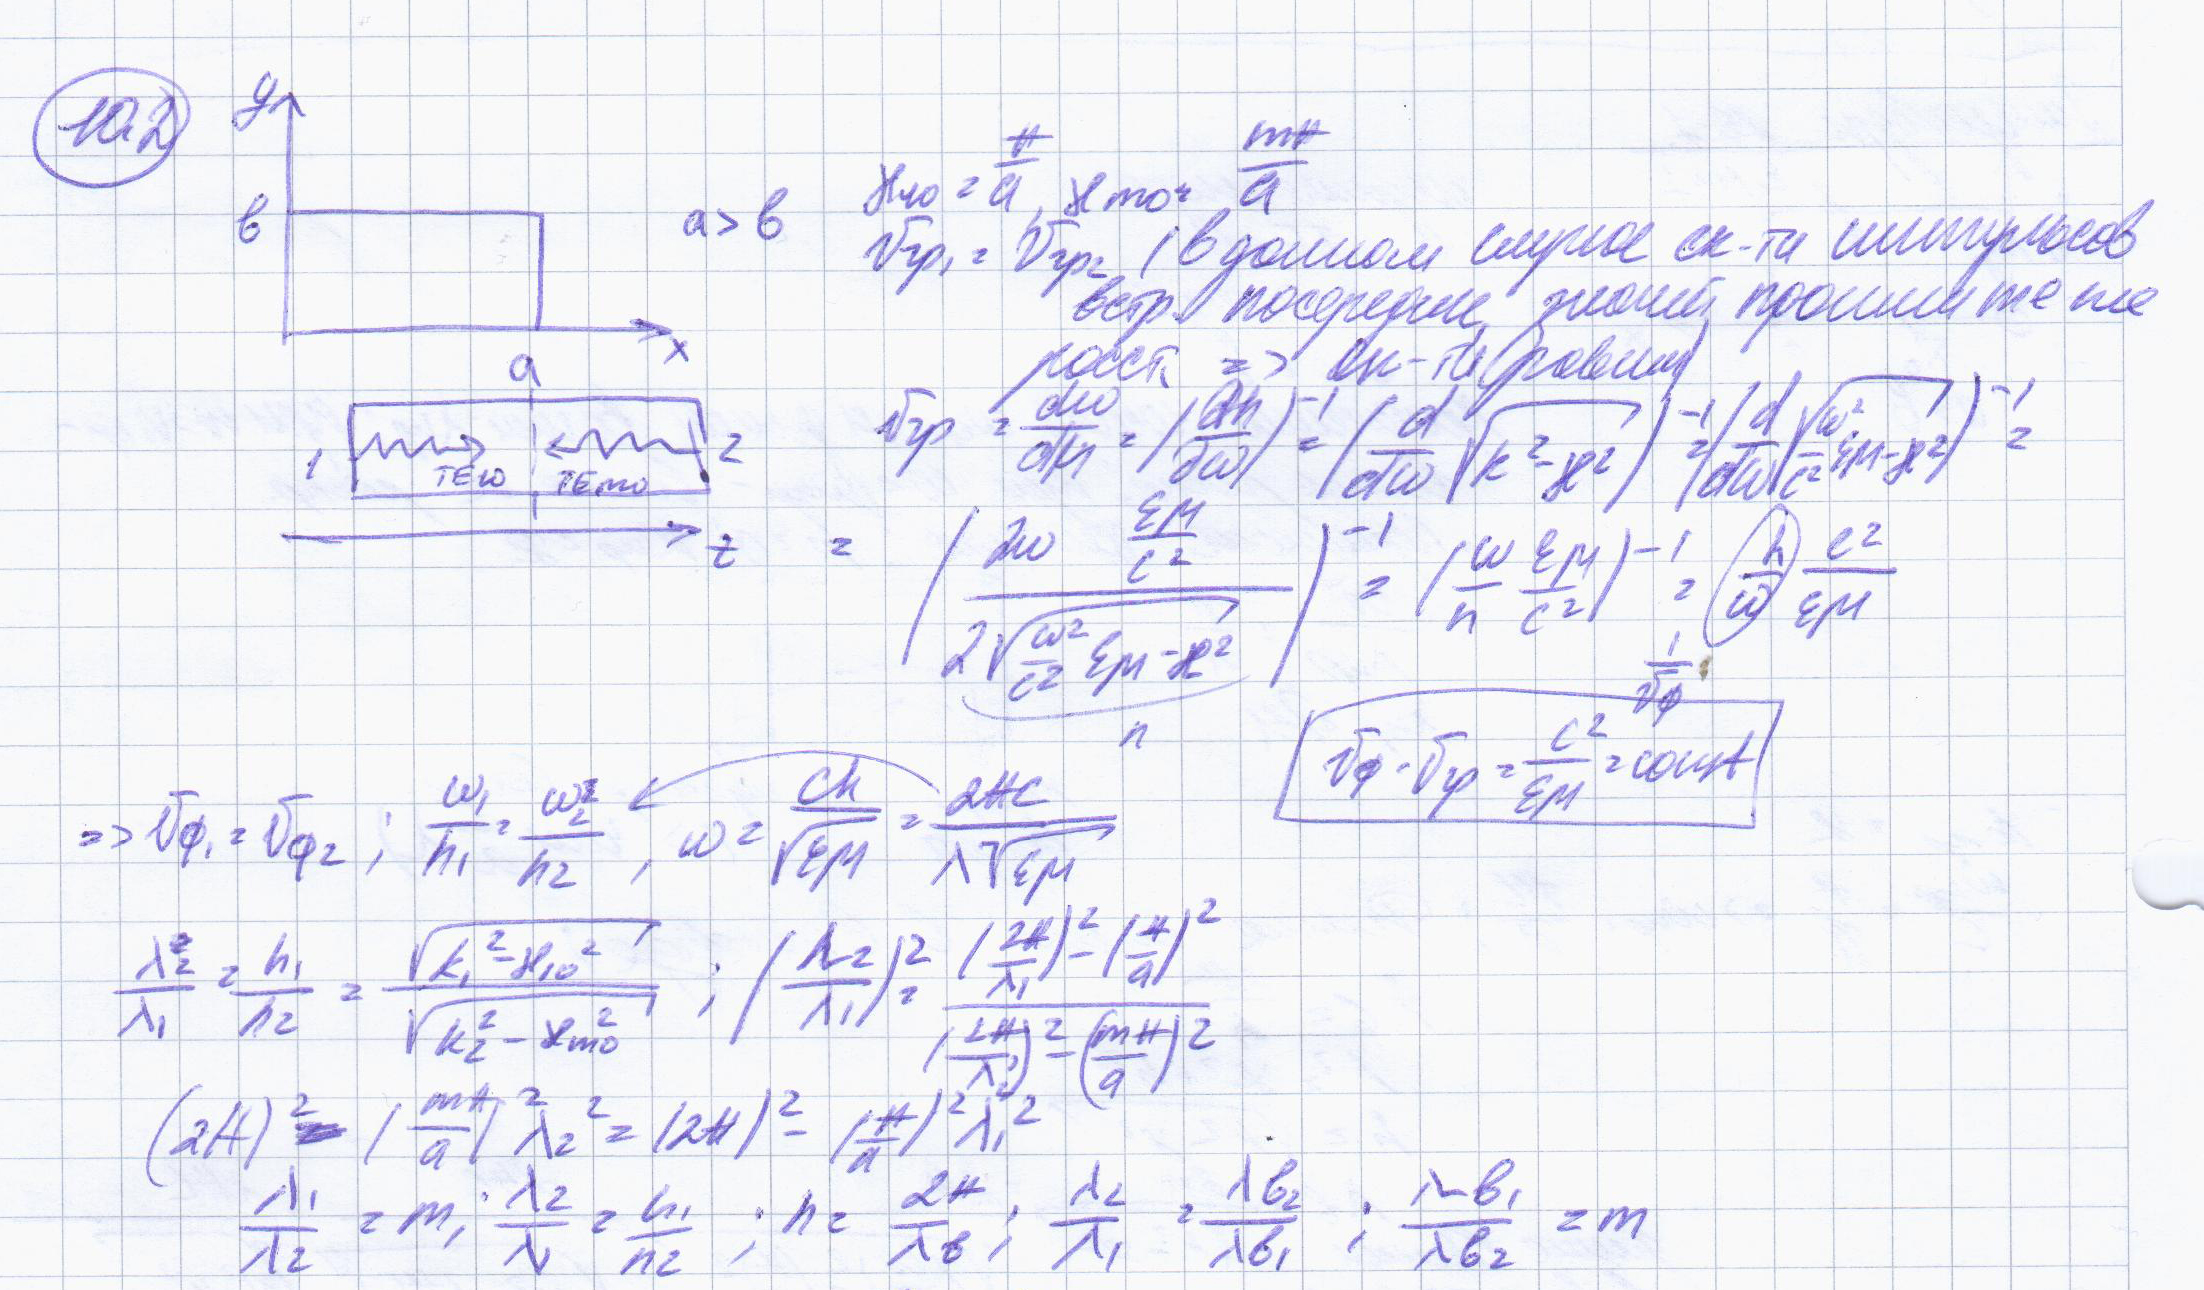 10.2
y
в
a > в
x
a
ϰ₁₀ = π/a, ϰₘ₀ = mπ/a
Vгр₁ = Vгр₂ (в данном случае ск-ти импульсов
встр. посередине, значит прошли те же
расст. => ск-ти равны)
1 TE₁₀ TEₘ₀ 2
z
Vгр = dω/dh = (dh/dω)⁻¹ = (d/dω √(k²-ϰ²))⁻¹ = (d/dω √(ω²/c² εμ-ϰ²))⁻¹ =
= (2ω εμ/c² / 2√(ω²/c² εμ-ϰ²))⁻¹ = (ω/h εμ/c²)⁻¹ = (h/ω) c²/εμ
h
1/Vф
Vф · Vгр = c²/εμ = const
=> Vф₁ = Vф₂ ; ω₁/h₁ = ω₂/h₂ , ω = ck/√εμ = 2πc/λ√εμ
λ₂/λ₁ = h₁/h₂ = √(k₁²-ϰ₁₀²)/√(k₂²-ϰₘ₀²) ; (λ₂/λ₁)² = ((2π/λ₁)²-(π/a)²)/((2π/λ₂)²-(mπ/a)²)
(2π)² - (mπ/a)² λ₂² = (2π)² - (π/a)² λ₁²
λ₁/λ₂ = m ; λ₂/λ₁ = h₁/h₂ ; h = 2π/λв ; λ₂/λ₁ = λв₂/λв₁ ; λв₁/λв₂ = m